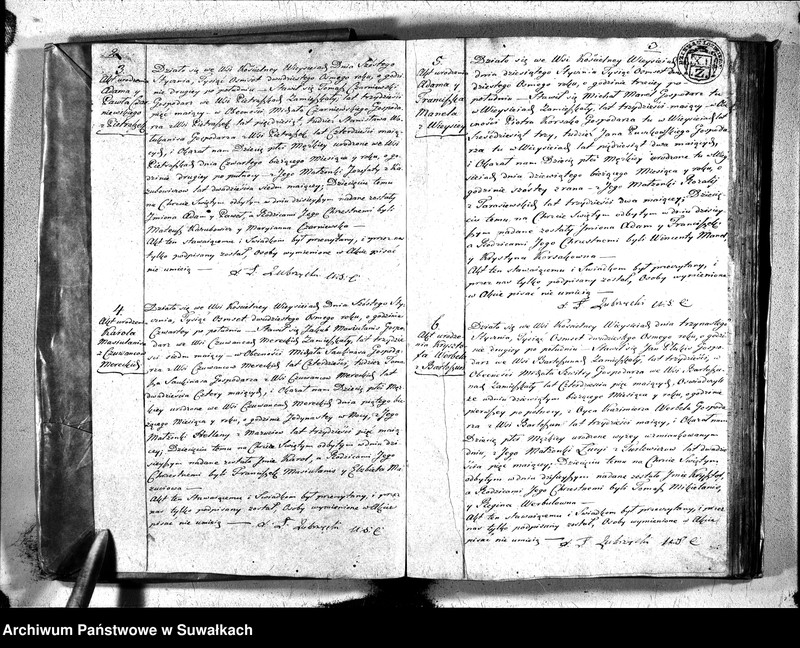 3.
Akt urodzenia
Adama y
Pawła
z Pietraszek
Działo się we Wsi Kościelney Wieysieiach Dnia Szóstego
Stycznia, Tysiąc Osmset dwudziestego Osmego roku, o godzi-
nie drugiey po południu – Stawił się Tomasz Czerniewski
Gospodarz we Wsi Pietraszkach Zamieszkały, lat trzydzieści
pięć maiący – w Obecności Michała Czerniewskiego Gospoda-
rza z Wsi Pietraszek lat pięćdziesiąt, tudzież Stanisława
Gospodarza z Wsi Pietraszek lat Czterdzieści maią-
cych, i Okazał nam Dziecię płci Męzkiey urodzone we Wsi
Pietraszkach dnia Czwartego bieżącego Miesiąca y roku, o go-
dzinie drugiey po północy – z Jego Małżonki Jozefaty z
lat dwadzieścia siedm maiącey; Dziecięciu temu
na Chrzcie Świętym odbytym w dniu dzisieyszym nadane zostały
Jmiona Adam y Paweł – a Rodzicami Jego Chrzestnemi byli
Mateusz y Maryanna Czerniewska –
Akt ten stawaiącemu i Świadkom był przeczytany, i przez na-
s tylko podpisany został, Osoby wymienione w Akcie pisać
nie umieią – X J. Zubrzycki U.S.C.
4.
Akt urodzenia
Karola
Masiulanisa
z Czuwancow
Mereckich
Działo się we Wsi Kościelney Wieysieiach Dnia Szóstego Sty-
cznia, Tysiąc Osmset dwudziestego Osmego roku, o godzinie
Czwartey po południu – Stawił się Jakub Masiulanis Gospo-
darz we Wsi Czuwancach Mereckich Zamieszkały, lat trzydzie-
ści siedm maiący – w Obecności Michała Gospoda-
rza z Wsi Czuwancow Mereckich lat Czterdzieści, tudzież Toma-
sza Gospodarza z Wsi Czuwancow Mereckich lat
dwadzieścia Cztery maiących, i Okazał nam Dziecię płci Męz-
kiey urodzone we Wsi Czuwancach Mereckich dnia piątego bie-
żącego Miesiąca y roku, o godzinie Jedynastey w Nocy, z Jego
Małżonki Heleny z lat trzydzieści pięć maią-
cey; Dziecięciu temu na Chrzcie Świętym odbytym w dniu dzi-
sieyszym nadane zostało Jmie Karol, a Rodzicami Jego
Chrzestnemi byli Franciszek Masiulanis y Elżbieta
Akt ten Stawaiącemu i Świadkom był przeczytany, i przez
nas tylko podpisany został, Osoby wymienione w Akcie
pisać nie umieią – X J. Zubrzycki U.S.C.
5.
Akt urodzenia
Adama y
Franciszka
Manela
z Wieysiey
Działo się we Wsi Kościelney Wieysieiach
dnia dziesiątego Stycznia Tysiąc Osmset Dwu-
dziestego Osmego roku, o godzinie trzeciey
południu – Stawił się Michał Gospodarz tu
w Wieysieiach Zamieszkały, lat trzydzieści maiący – w Obe-
cności Piotra Korsaka Gospodarza tu w Wieysieiach lat
Sześćdziesiąt trzy, tudzież Jana Gospoda-
rza tu w Wieysieiach lat pięćdziesiąt dwa maiących,
i Okazał nam Dziecię płci Męzkiey urodzone tu w Wiey-
sieiach dnia dziewiątego bieżącego Miesiąca y roku, o
godzinie szóstey z rana – z Jego Małżonki Rozalii
z lat trzydzieści dwa maiącey; Dziecię-
ciu temu, na Chrzcie Świętym odbytym w dniu dzisiey-
szym nadane zostały Jmiona Adam y Franciszek
a Rodzicami Jego Chrzestnemi byli Wincenty
y Krystyna Korsakowna –
Akt ten stawaiącemu i Świadkom był przeczytany, i
przez nas tylko podpisany został, Osoby wymienione
w Akcie pisać nie umieią – X J. Zubrzycki U.S.C.
6.
Akt urodze-
nia Krzyszto-
fa
z
Działo się we Wsi Kościelney Wieysieiach dnia trzynastego
Stycznia, Tysiąc Osmset dwudziestego Osmego roku, o godzi-
nie drugiey po południu – Stawił się Jan Gospo-
darz we Wsi Zamieszkały, lat trzydzieści, w
Obecności Michała Gospodarza we Wsi
Zamieszkały lat Czterdzieścia pięć maiących, Oświadczyli
że w dniu dwunastym bieżącego Miesiąca y roku, o godzinie
pierwszey po północy, z Oyca Kazimierza Gospoda-
rza z Wsi lat trzydzieści maiący, i Okazał nam
Dziecię płci Męzkiey urodzone wyżey wzmiankowanym
dniu, z Jego Małżonki Łucyi z lat dwadzie-
ścia pięć maiącey; Dziecięciu temu na Chrzcie Świętym
odbytym w dniu dzisieyszym nadane zostało Jmie Krzysztof,
a Rodzicami Jego Chrzestnemi byli Tomasz
y Regina
Akt ten stawaiącemu i Świadkom był przeczytany, i przez
nas tylko podpisany został, Osoby wymienione w Akcie
pisać nie umieią – X J. Zubrzycki U.S.C.
Archiwum Państwowe w Suwałkach